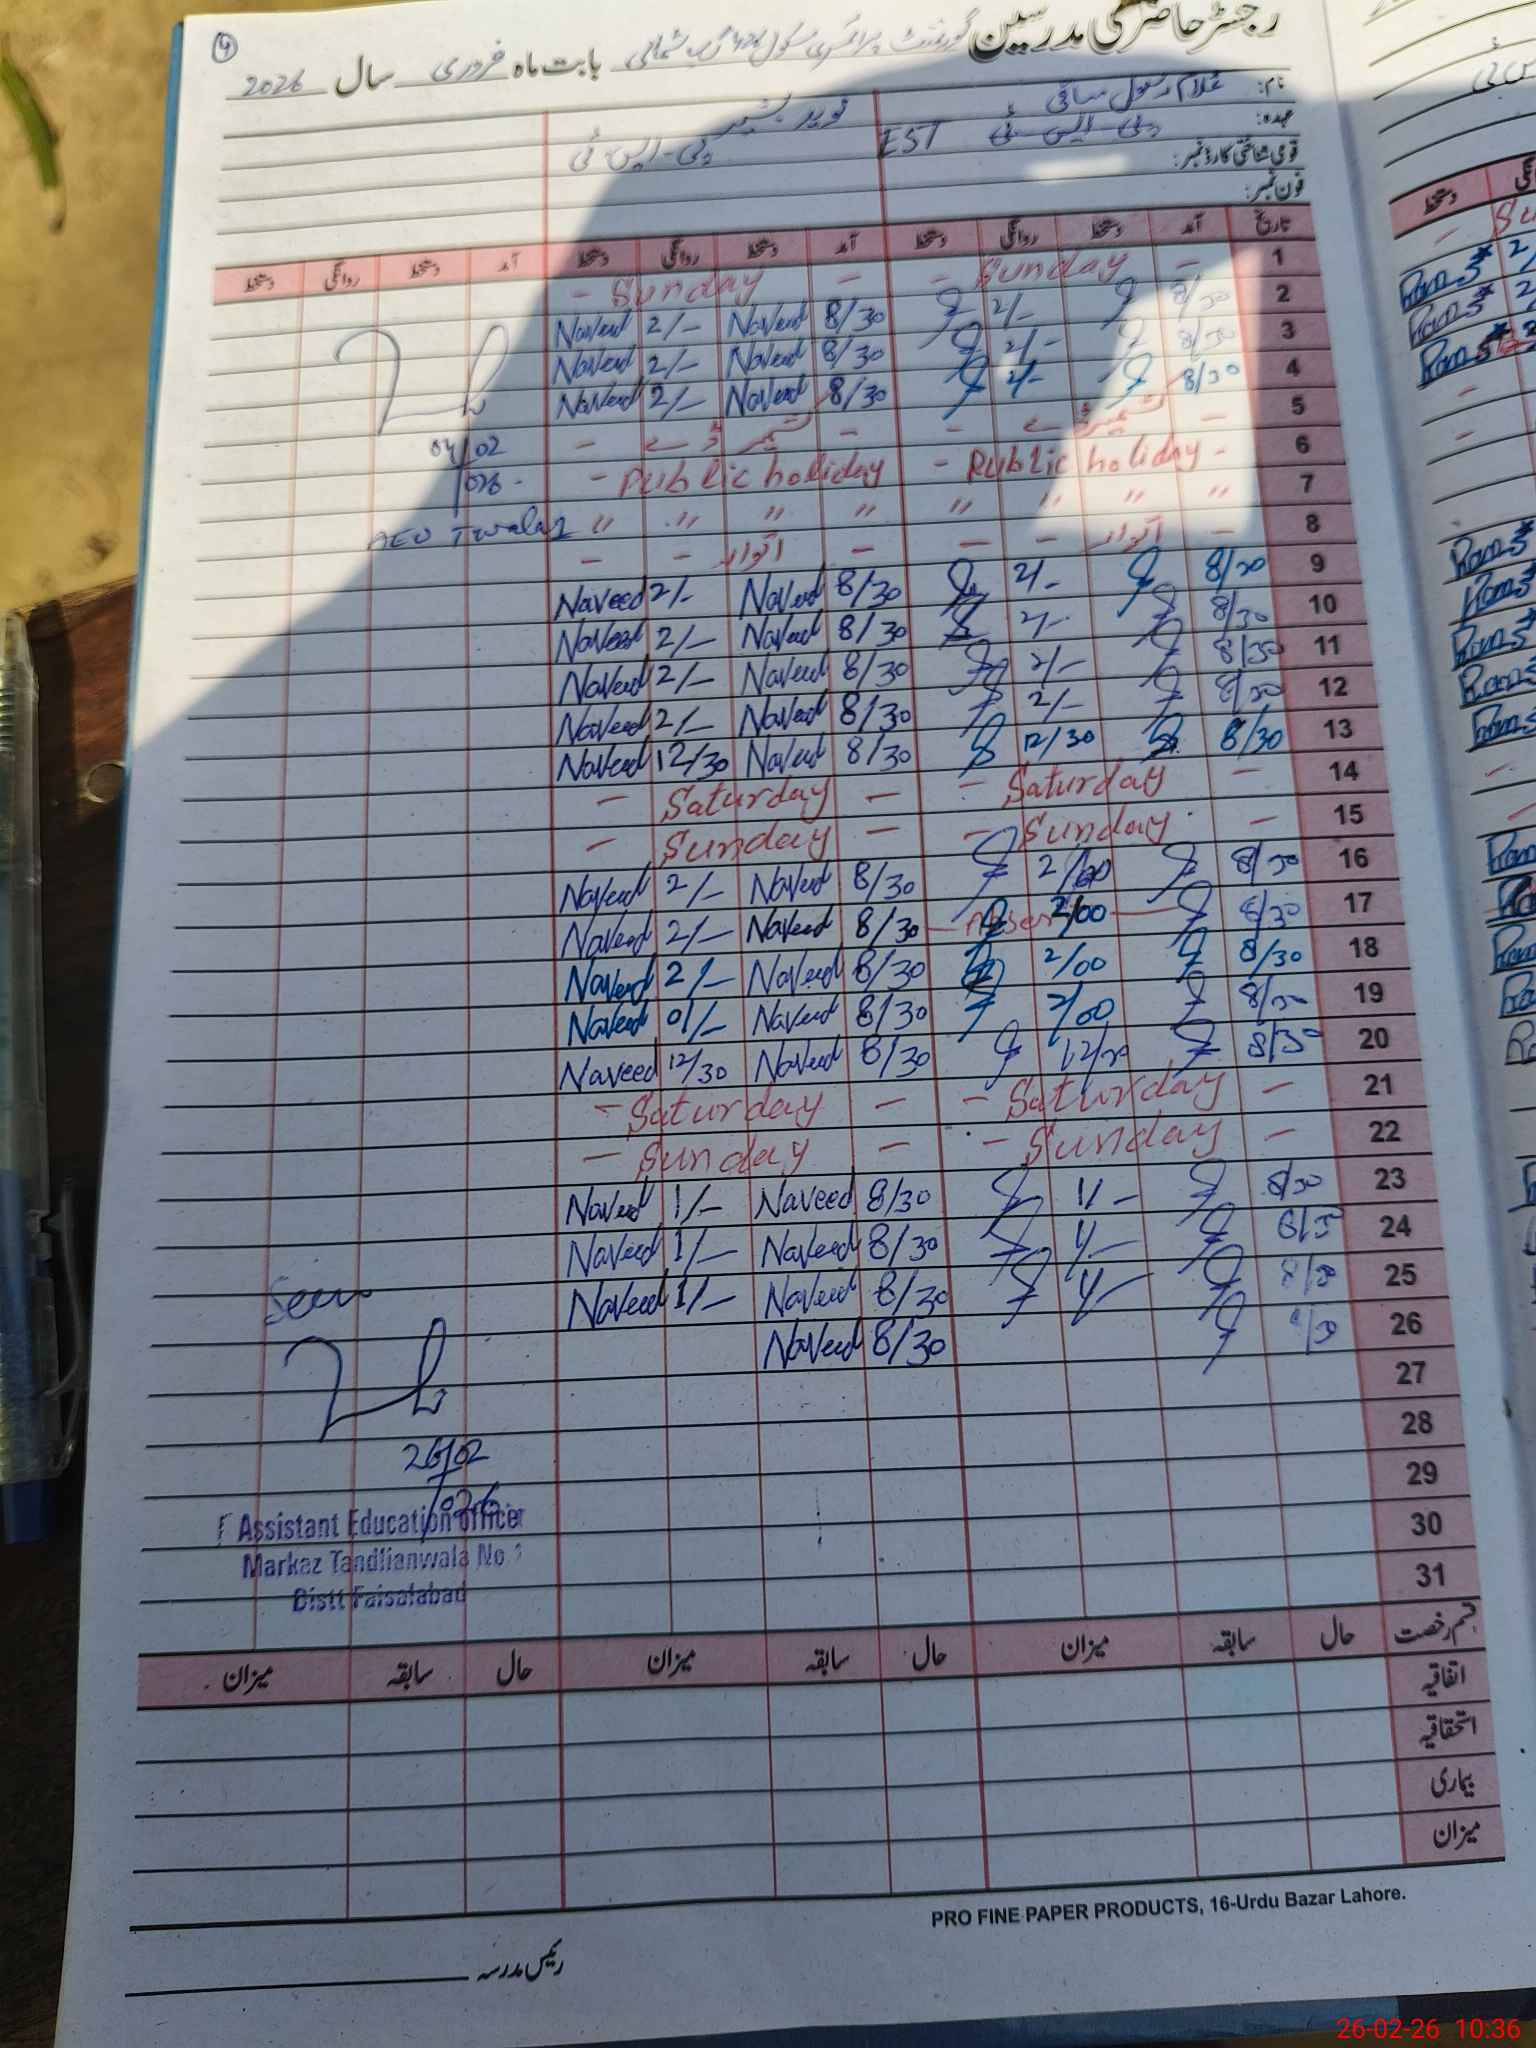 رجسٹر حاضری مدرسین گورنمنٹ پرائمری سکول شمالی بابت ماہ فروری سال 2026
نام: غلام رسول ساقی نوید بشیر
عہدہ: پی-ایس-ٹی EST پی-ایس-ٹی
قومی شناختی کارڈ نمبر:
فون نمبر:
تاریخ آمد دستخط روانگی دستخط آمد دستخط روانگی دستخط آمد دستخط روانگی دستخط
- Sunday - - Sunday - 1
Naveed 2/- Naveed 8/30 2/- 8/30 2
Naveed 2/- Naveed 8/30 2/- 8/30 3
Naveed 2/- Naveed 8/30 2/- 8/30 4
04/02
- کشمیر ڈے - - کشمیر ڈے - 5
/026
- Public holiday - Public holiday - 6
AEO
" " " " " " " " 7
- - اتوار - - - اتوار - 8
Naveed 2/- Naveed 8/30 2/- 8/30 9
Naveed 2/- Naveed 8/30 2/- 8/30 10
Naveed 2/- Naveed 8/30 2/- 8/30 11
Naveed 2/- Naveed 8/30 2/- 8/30 12
Naveed 12/30 Naveed 8/30 12/30 8/30 13
- Saturday - - Saturday - 14
- Sunday - - Sunday - 15
Naveed 2/- Naveed 8/30 2/00 8/30 16
Naveed 2/- Naveed 8/30 2/00 8/30 17
Naveed 2/- Naveed 8/30 2/00 8/30 18
Naveed 01/- Naveed 8/30 2/00 8/30 19
Naveed 12/30 Naveed 8/30 12/30 8/30 20
- Saturday - - Saturday - 21
- Sunday - - Sunday - 22
Naveed 1/- Naveed 8/30 1/- 8/30 23
Naveed 1/- Naveed 8/30 1/- 24
Seen
Naveed 1/- Naveed 8/30 1/- 25
Naveed 8/30 26
27
28
26/02
/026
29
Assistant Education officer
30
Markaz Tandlianwala No
31
Distt Faisalabad
قسم رخصت حال سابقہ میزان حال سابقہ میزان حال سابقہ میزان
اتفاقیہ
استحقاقیہ
بیماری
میزان
PRO FINE PAPER PRODUCTS, 16-Urdu Bazar Lahore.
رئیس مدرسہ
26-02-26 10:36